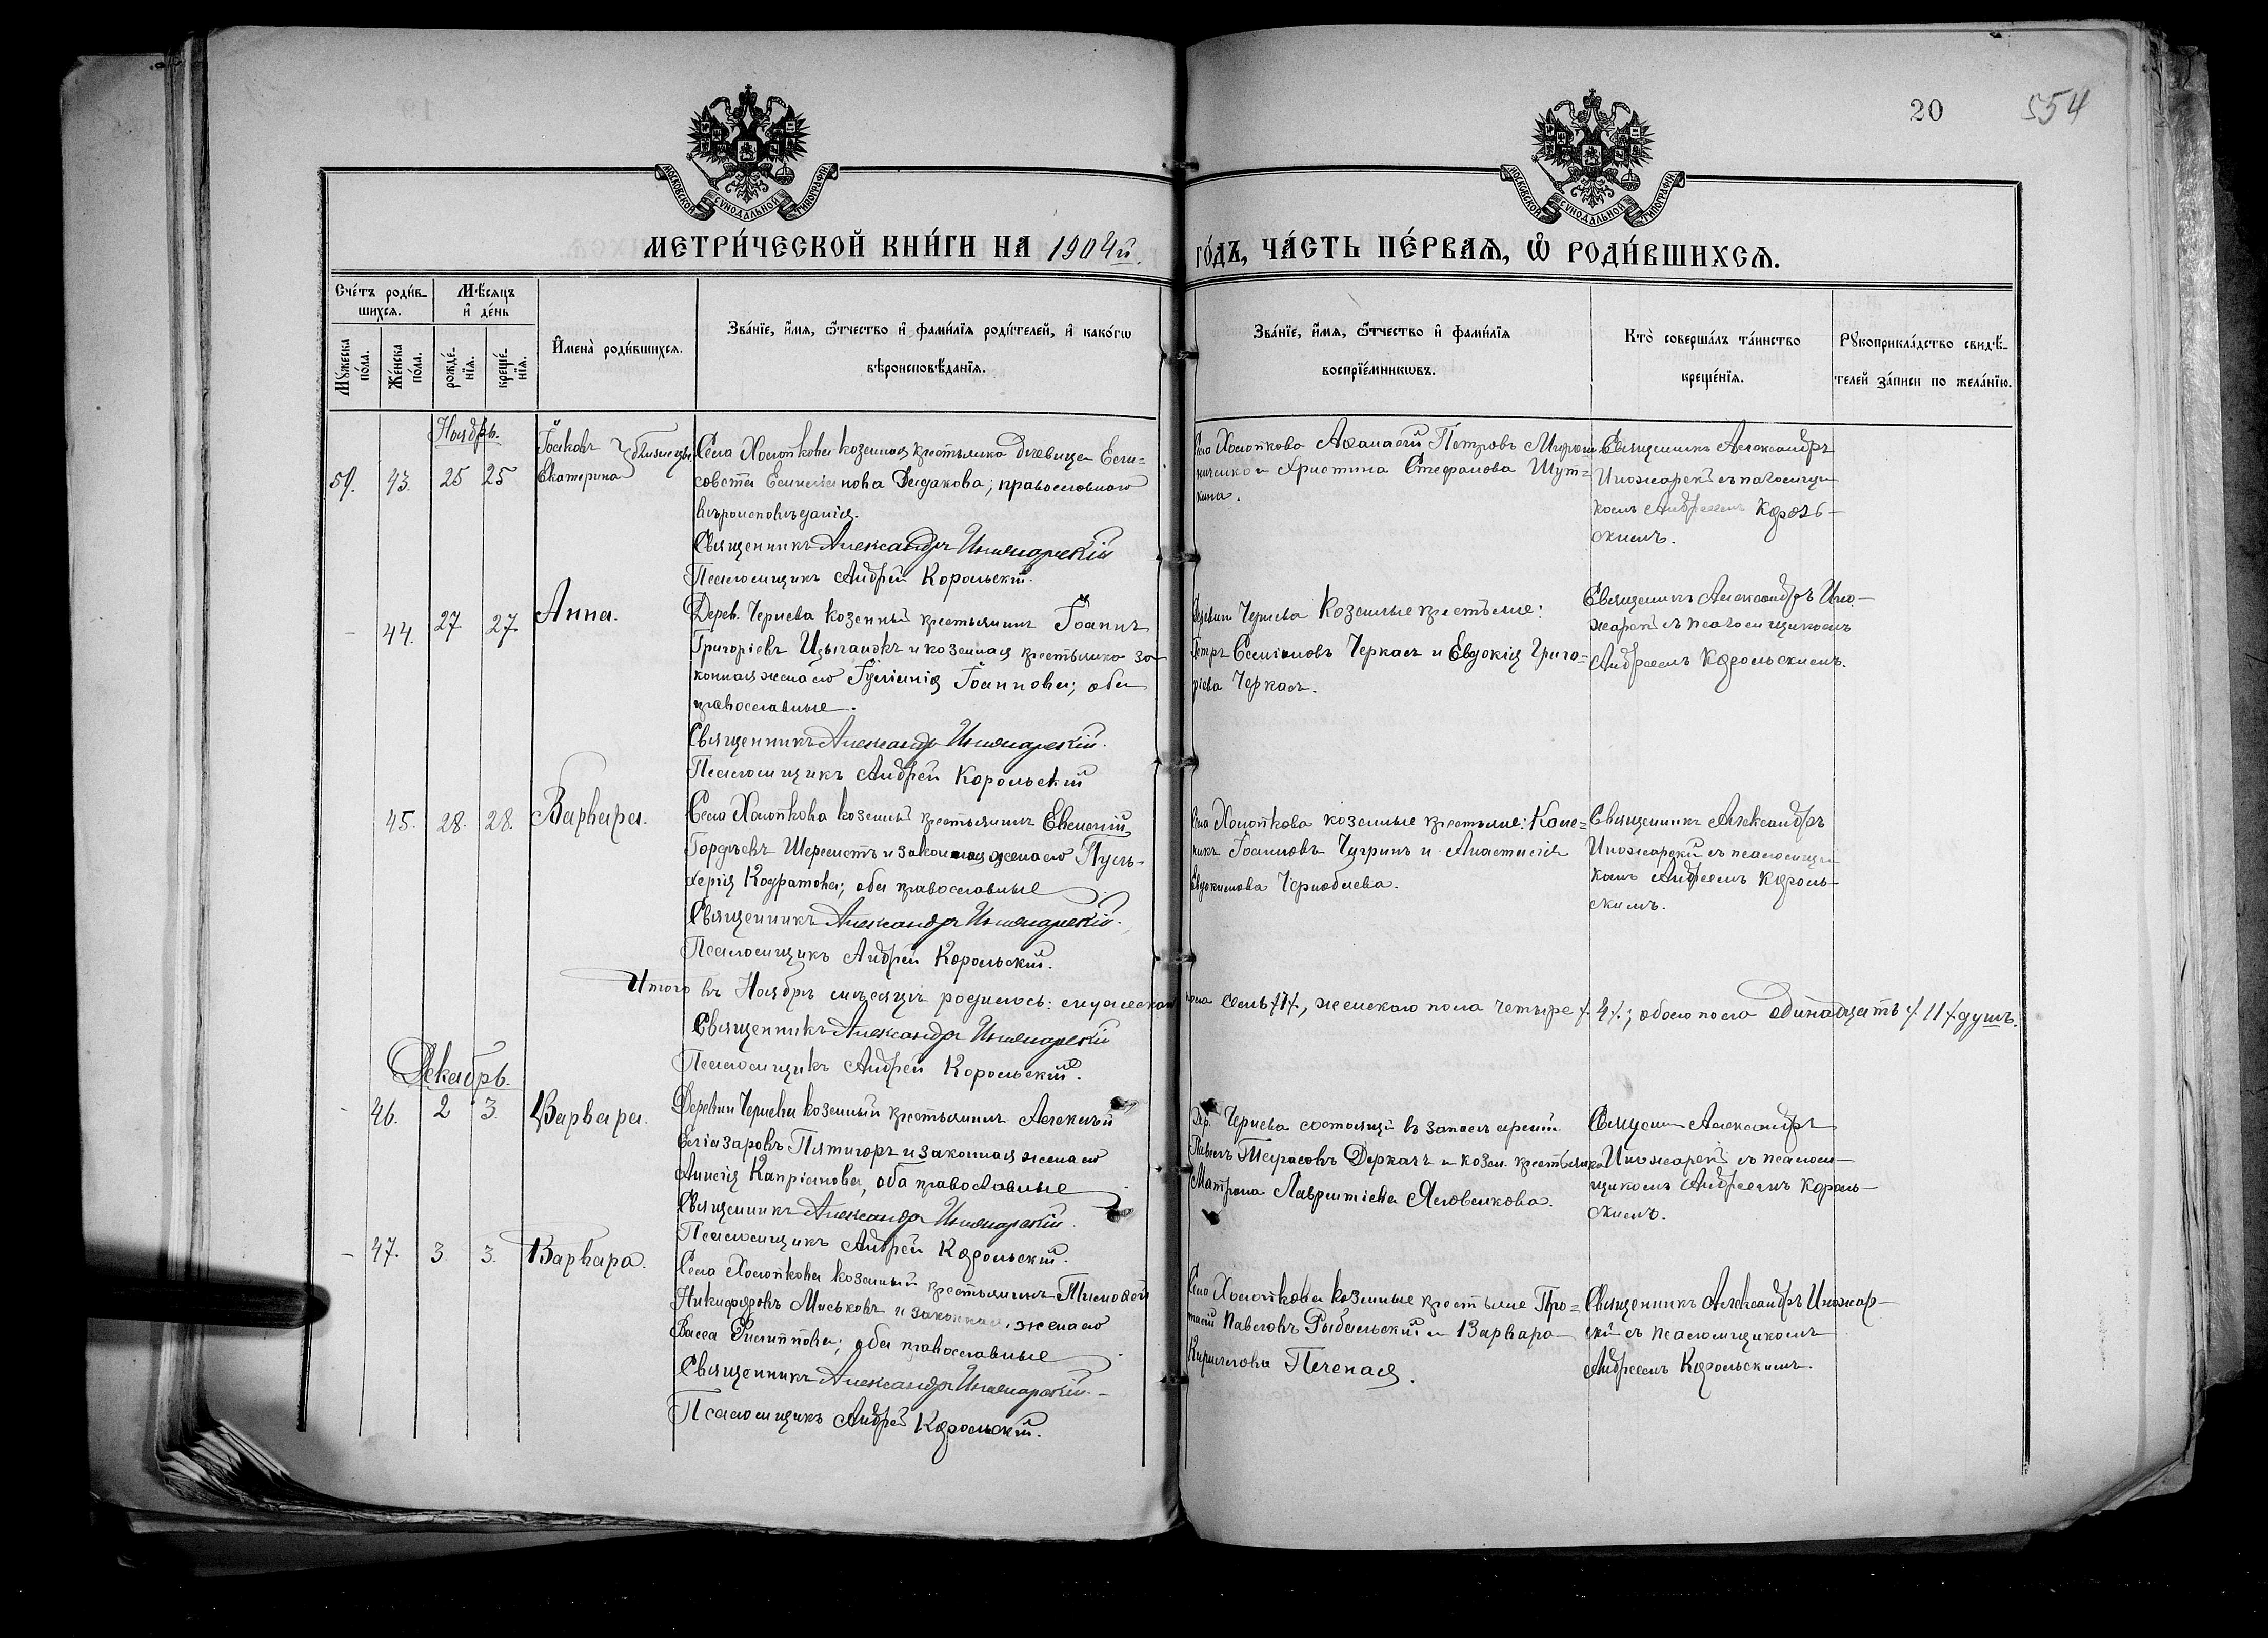 20 554
МОСКОВСКОЙ СѴНОДАЛЬНОЙ ТИПОГРАФІИ
МОСКОВСКОЙ СѴНОДАЛЬНОЙ ТИПОГРАФІИ
МЕТРИ́ЧЕСКОЙ КНИ́ГИ НА 1904й. ГО́ДЪ, ЧА́СТЬ ПЕ́РВАѦ, Ѡ РОДИ́ВШИХСѦ.
Сче́тъ роди́в-
шихсѧ.
Мѣ́сѧцъ
и де́нь
Мꙋ́жеска по́ла.
Же́нска по́ла.
рожде́-нїѧ.
креще́-нїѧ.
Имена̀ роди́вшихсѧ.
Зва́нїе, и́мѧ, ѻ́тчество и фами́лїѧ роди́телей, и како́гѡ
вѣроисповѣ́данїѧ.
Зва́нїе, и́мѧ, ѻ́тчество и фами́лїѧ
воспрїе́мникѡвъ.
Кто̀ соверша́лъ та́инство
креще́нїѧ.
Рꙋкоприкла́дство свидѣ́-
телей за́писи по жела́нїю.
Ноябрь.
59. 43. 25 25
Іоаковъ
Екатерина } близнецы
Села Хлопкова козенная крестьянка девица Ели-
совета Емилианова Дидакова; православнаго
вѣроисповѣданія.
Священникъ Александръ Иножарскій
Псаломщикъ Андрей Корольскій.
Села Хлопкова Аѳанасій Петровъ Мирош-
ниченко и Христина Стефанова Шут-
кина.
Священникъ Александръ
Иножарскій съ псаломщи-
комъ Андреемъ Король-
скимъ.
– 44. 27 27. Анна.
Дерев. Чернева козенный крестьянинъ Іоаннъ
Григоріевъ Цыганокъ и козенная крестьянка за-
конная жена его Іуліанія Іоаннова; оба
православные.
Священникъ Александръ Иножарскій.
Псаломщикъ Андрей Корольскій
Деревни Чернева Козенные крестьяне:
Петръ Семіоновъ Черкасъ и Евдокія Григо-
ріева Черкасъ.
Священникъ Александръ Ино-
жарскій съ псаломщикомъ
Андреемъ Корольскимъ.
45. 28. 28. Варвара.
Села Хлопкова козенный крестьянинъ Евменій
Гордѣевъ Шереметъ и законная жена его Пуль-
херія Кодратова; оба православные
Священникъ Александръ Иножарскій.
Псаломщикъ Андрей Корольскій.
Села Хлопкова козенные крестьяне: Кале-
никъ Іоанновъ Чугринъ и Анастасія
Евдокимова Чернобаева.
Священникъ Александръ
Иножарскій съ псаломщи-
комъ Андреемъ Король-
скимъ.
Итого въ Ноябрѣ мѣсяцѣ родилось: мужескаго пола семь /7/., женскаго пола четыре /.4/.; обоего пола одинадцать /.11/. душъ.
Священникъ Александръ Иножарскій
Псаломщикъ Андрей Корольскій.
Декабрь.
– 46. 2 3. Варвара.
Деревни Чернева козенный крестьянинъ Алексѣй
Елиазаровъ Пятигоръ и законная жена его
Анисія Капріанова, оба православные
Священникъ Александръ Иножарскій.
Псаломщикъ Андрей Корольскій.
Дер. Чернева состоящій въ запасѣ арміи
Павелъ Тарасовъ Деркачъ и козен. крестьянка
Матрона Лаврентіева Яловенкова.
Священ Александръ
Иножарскій съ псалом-
щикомъ Андреемъ Король-
скимъ.
– 47. 3. 3. Варвара.
Села Хлопкова козенный крестьянинъ Тимоѳей
Никифоровъ Миськовъ и законная жена его
Васса Филиппова; оба православные
Священникъ Александръ Иножарскій.
Псаломщикъ Андрей Корольскій.
Села Хлопкова козенные крестьяне Про-
тасій Павловъ Рыбальскій и Варвара
Кириллова Печеная.
Священникъ Александръ Иножар-
скій съ псаломщикомъ
Андреемъ Корольскимъ.